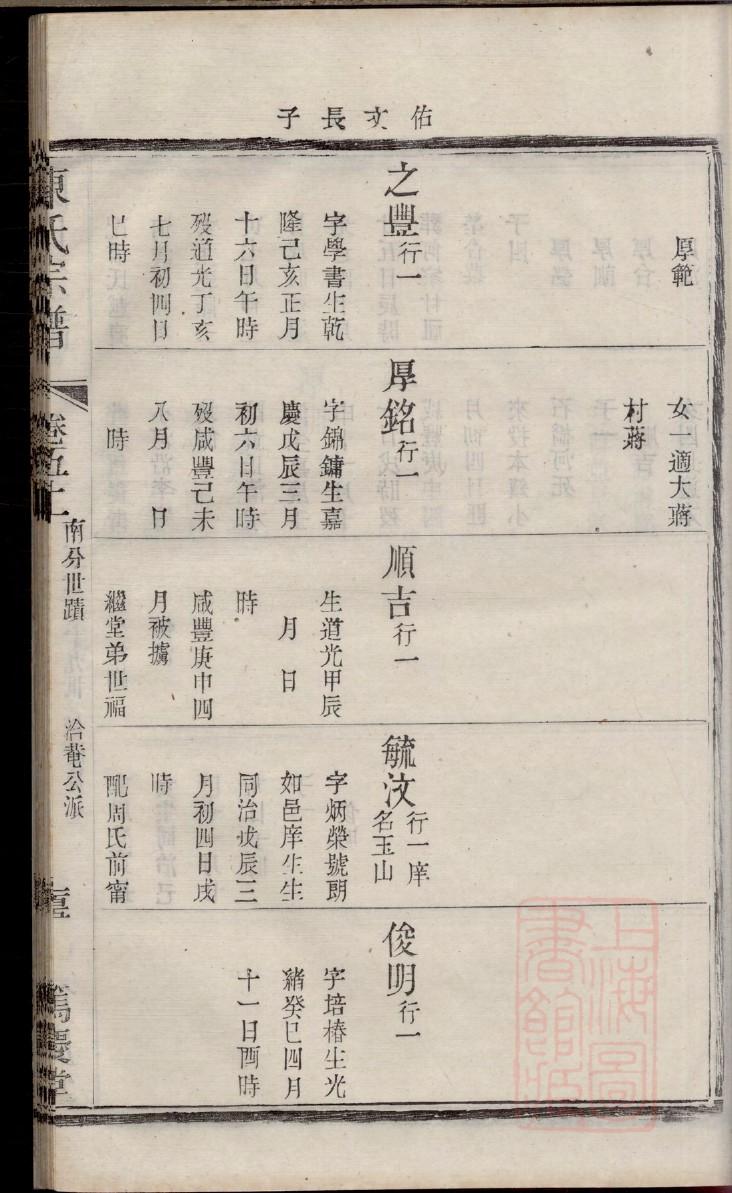 佑文長子
厚範
之豐行一
字學書生乾
隆己亥正月
十六日午時
歿道光丁亥
七月初四日
巳時
女一適大蔣
村蔣
厚銘行一
字錦鏞生嘉
慶戊辰三月
初六日午時
歿咸豐己未
八月 日
時
順吉行一
生道光甲辰
月 日
時
咸豐庚申四
月被擄
繼堂弟世福
毓汶行一庠
名玉山
字炳榮號朗
如邑庠生生
同治戊辰三
月初四日戌
時
配周氏前甯
俊明行一
字培椿生光
緒癸巳四月
十一日酉時
陳氏宗譜
卷五上
南分世蹟
洽菴公派
篤慶堂
上海圖書館藏